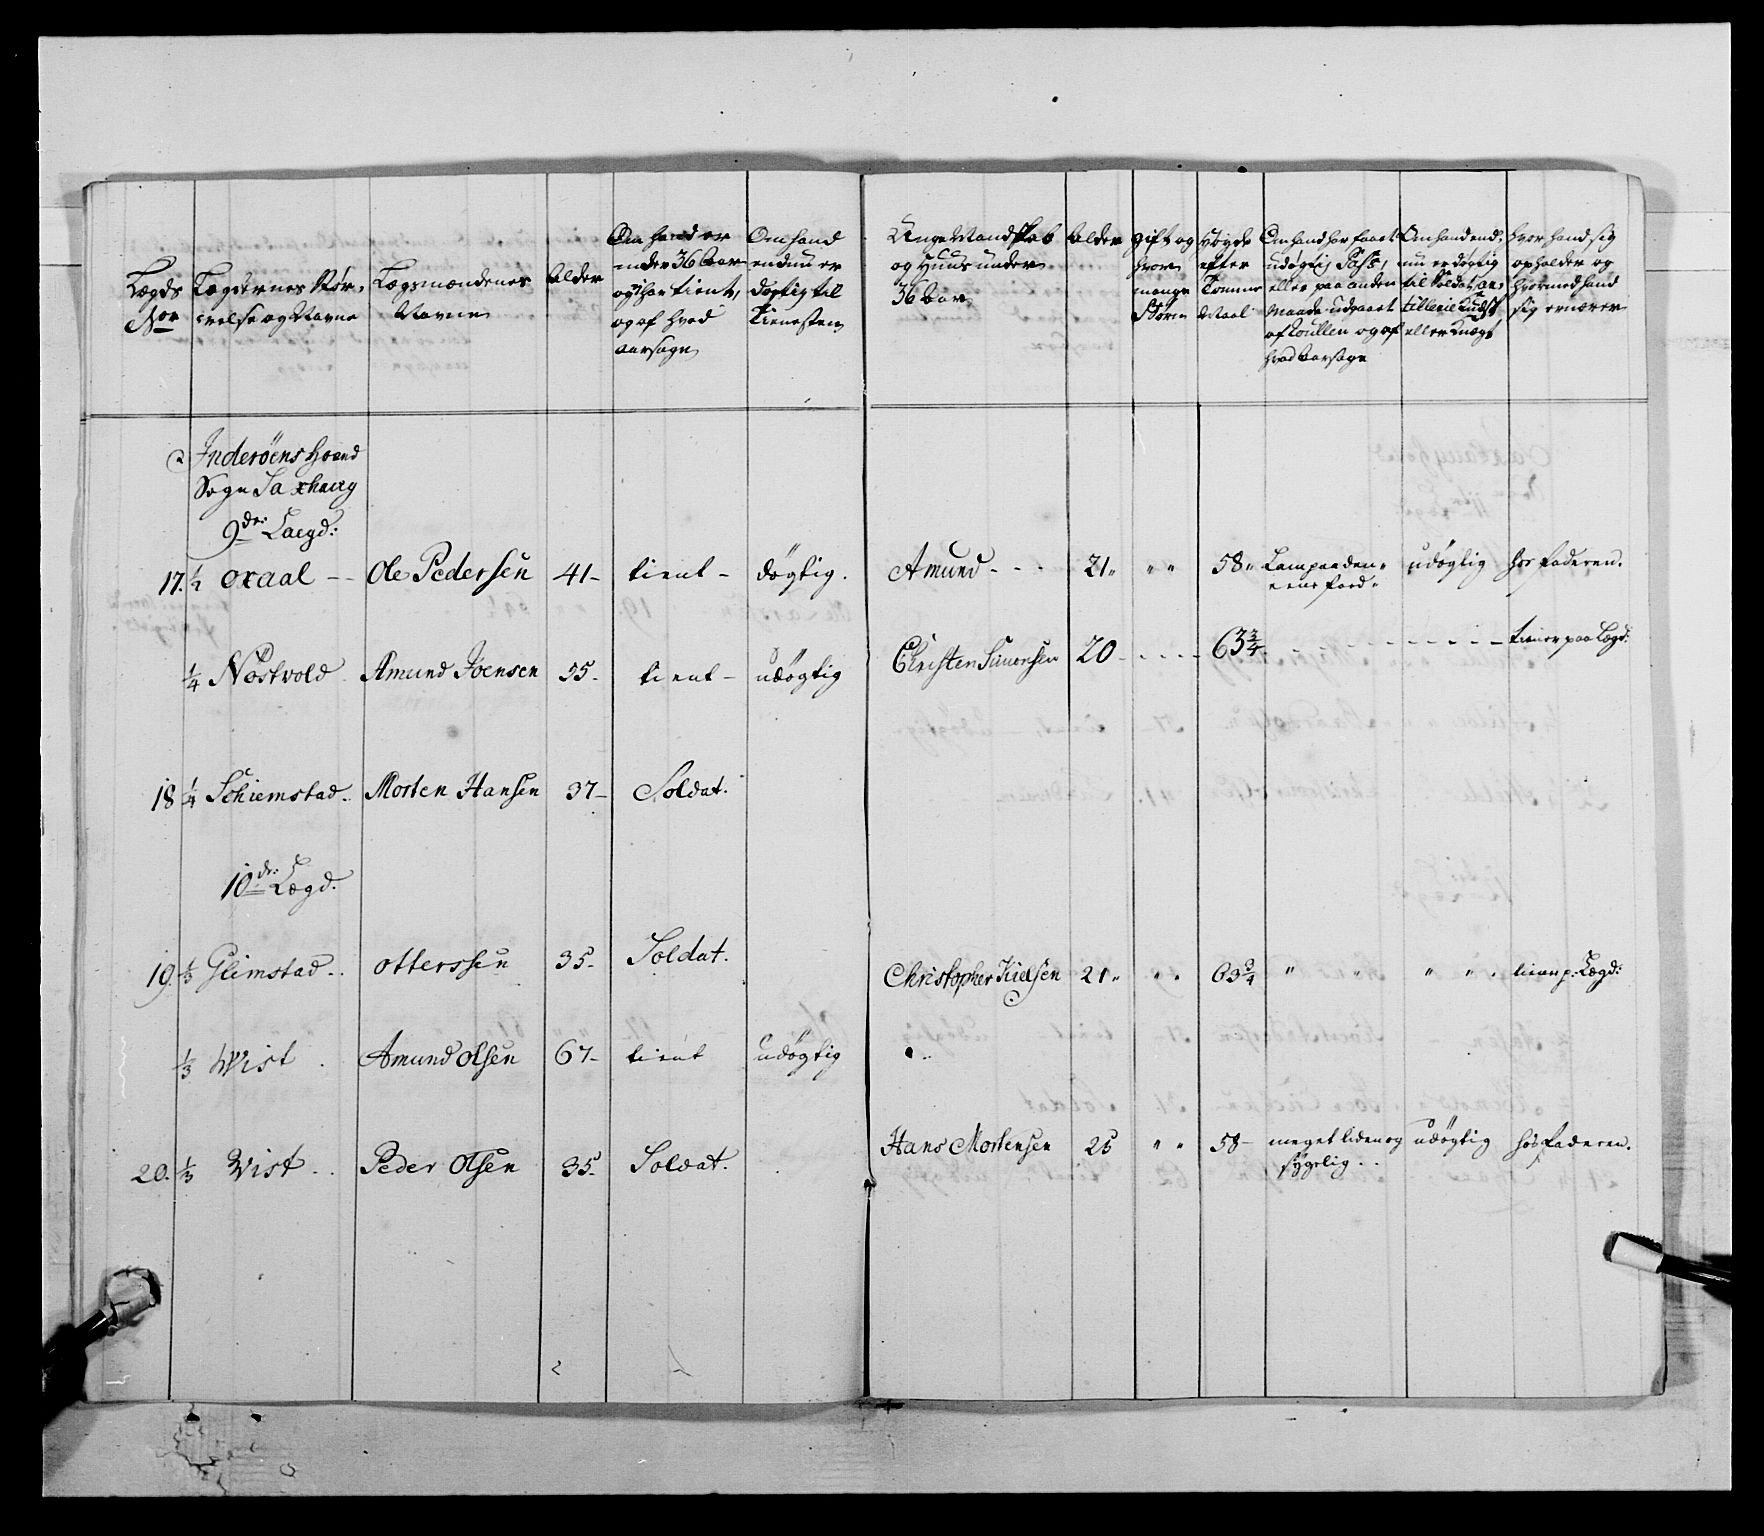 Lægds
No
Lægdernes Stør-
relse og Navne
Lægsmændenes
Navne
Alder
Om hand er
under 36 Aar
og har tient,
og af hvad
Aarsage
Om hand
endnu er
døgtig til
Tienesten
Unge Mandskab
og Huus under
36 Aar
Alder
gift og
hvor
mange
Børn
Høyde
efter
Tomme
Maal
Om hand har faaet
udøgtig Pass,
eller paa anden
Maade udgaaet
af Roullen og af
hvad Aarsage
Om hand end-
nu er døgtig
til Soldat,
eller Knægt
hvor hand sig
opholder og
hvormed hand
sig ernærer
Inderöens
Sogn Saxhaug
9de: Laegd:
17. 1/2 Oxaal -- Ole Pedersen 41- tient - døgtig. Amund - - - 21" " " 58" Lam paa den
eene udøgtig hos Faderen.
1/4 Nöstvold Amund Joensen 55- tient - udøgtig Christen Simonsen 20 - - - - 63 3/4 - - - - - - - tiener paa Lægd:
18 1/4 Schiemstad.. Morten Hansen 37- Soldat.
10de: Lægd.
19. 1/3 Glimstad.. Otterssen 35- Soldat. Christopher 21" " " 63 3/4 " " " " tiener p: Lægd:
1/3 Wist . Amund Olsen 67- tient udøgtig " "
20. 1/3 Wist .. Peder Olsen 35- Soldat. Hans Mortensen 25 " " 58- meget liden og
sÿgelig .. udøgtig hos Faderen.